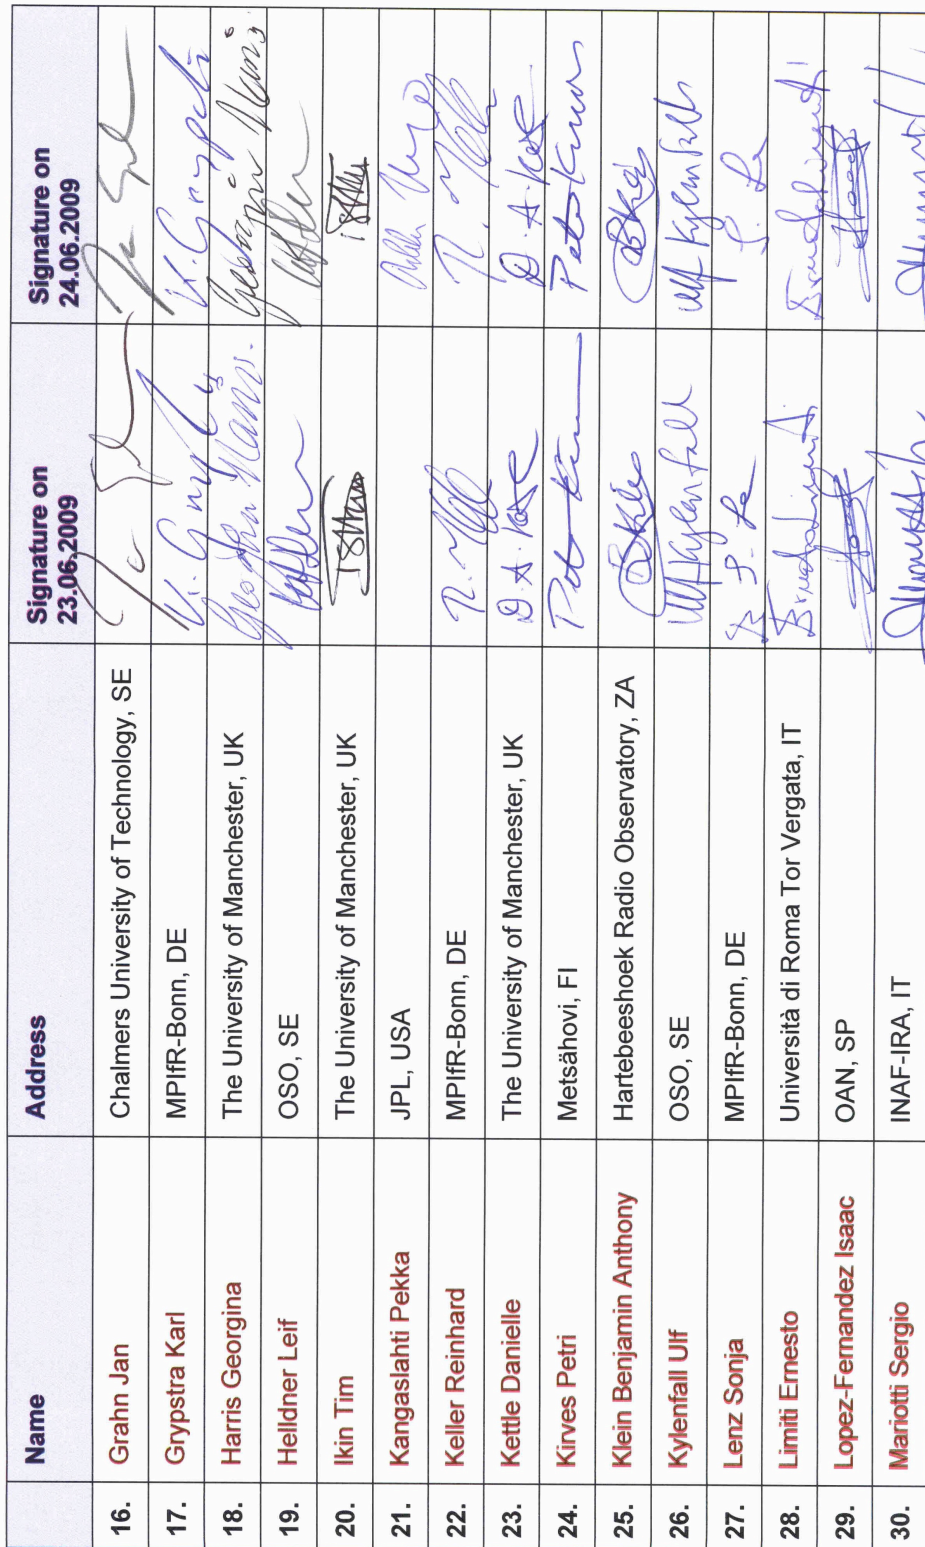 Name Address Signature on 23.06.2009 Signature on 24.06.2009
16. Grahn Jan Chalmers University of Technology, SE
17. Grypstra Karl MPIfR-Bonn, DE K. Grypstra
18. Harris Georgina The University of Manchester, UK Georgina Harris
19. Helldner Leif OSO, SE
20. Ikin Tim The University of Manchester, UK
21. Kangaslahti Pekka JPL, USA
22. Keller Reinhard MPIfR-Bonn, DE R. Keller
23. Kettle Danielle The University of Manchester, UK
24. Kirves Petri Metsähovi, FI
25. Klein Benjamin Anthony Hartebeeshoek Radio Observatory, ZA
26. Kylenfall Ulf OSO, SE Ulf Kylenfall Ulf Kylenfall
27. Lenz Sonja MPIfR-Bonn, DE
28. Limiti Ernesto Università di Roma Tor Vergata, IT
29. Lopez-Fernandez Isaac OAN, SP
30. Mariotti Sergio INAF-IRA, IT